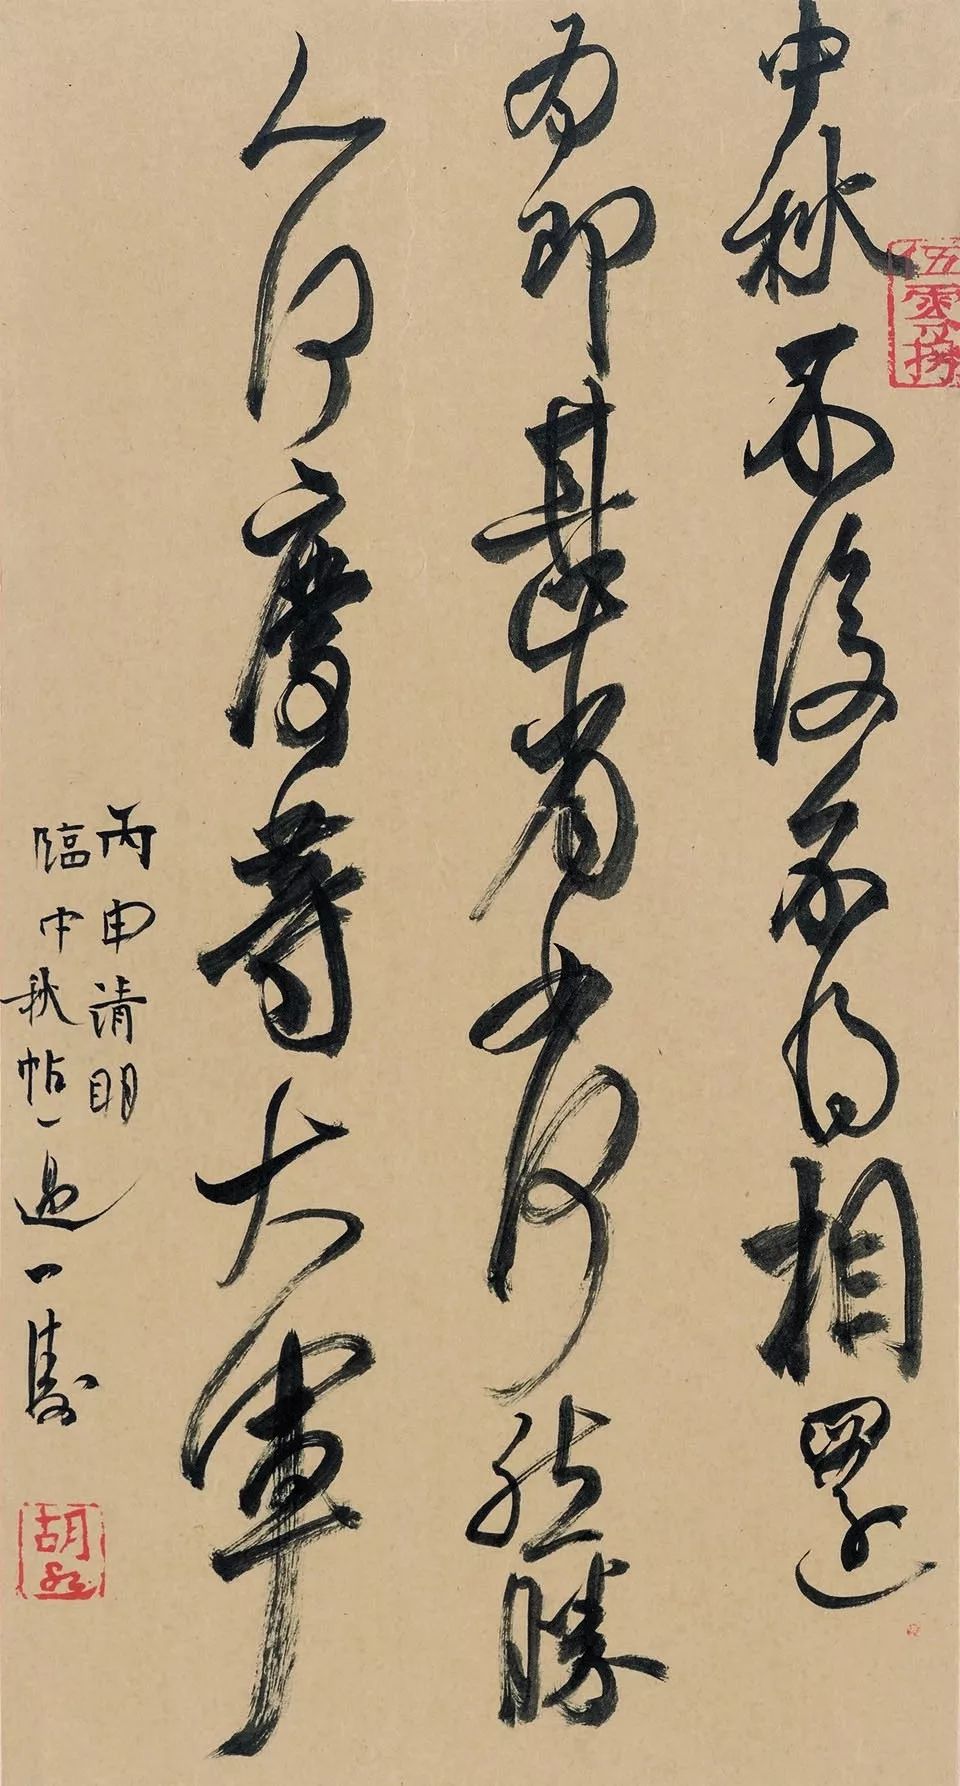 中秋不復不得相還
為即甚省如何然勝
人何慶等大軍
丙申清明
臨中秋帖一過一濤
伍零捌
胡